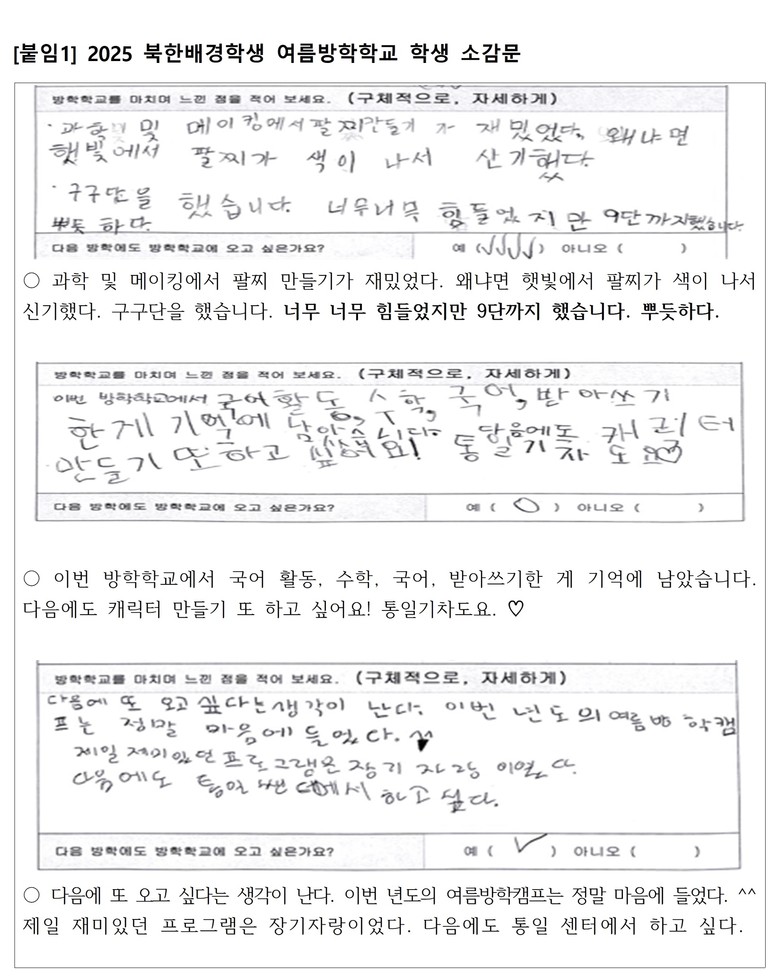 [붙임1] 2025 북한배경학생 여름방학학교 학생 소감문
방학학교를 마치며 느낀 점을 적어 보세요. (구체적으로, 자세하게)
· 과학 및 메이킹에서 팔찌만들기 가 재밌었다. 왜냐면
햇빛에서 팔찌가 색이 나서 신기했다.
· 구구단을 했습니다. 너무너무 힘들었지만 9단까지했습니다.
뿌듯하다.
다음 방학에도 방학학교에 오고 싶은가요? 예 (√√√√) 아니오 ( )
○ 과학 및 메이킹에서 팔찌 만들기가 재밌었다. 왜냐면 햇빛에서 팔찌가 색이 나서
신기했다. 구구단을 했습니다. 너무 너무 힘들었지만 9단까지 했습니다. 뿌듯하다.
방학학교를 마치며 느낀 점을 적어 보세요. (구체적으로, 자세하게)
이번 방학학교에서 국어활동, 수학, 국어, 받아쓰기
한게 기억에 남았습니다. 다음에도 캐릭터
만들기 또하고 싶어요! 통일기차도요♡
다음 방학에도 방학학교에 오고 싶은가요? 예 ( ○ ) 아니오 ( )
○ 이번 방학학교에서 국어 활동, 수학, 국어, 받아쓰기한 게 기억에 남았습니다.
다음에도 캐릭터 만들기 또 하고 싶어요! 통일기차도요. ♡
방학학교를 마치며 느낀 점을 적어 보세요. (구체적으로, 자세하게)
다음에 또 오고 싶다는 생각이 난다. 이번 년도의 여름방학캠
프는 정말 마음에 들었다. ^^
제일 재미있던 프로그램은 장기 자랑 이었다.
다음에도 통일 센터에서 하고 싶다.
다음 방학에도 방학학교에 오고 싶은가요? 예 ( √ ) 아니오 ( )
○ 다음에 또 오고 싶다는 생각이 난다. 이번 년도의 여름방학캠프는 정말 마음에 들었다. ^^
제일 재미있던 프로그램은 장기자랑이었다. 다음에도 통일 센터에서 하고 싶다.